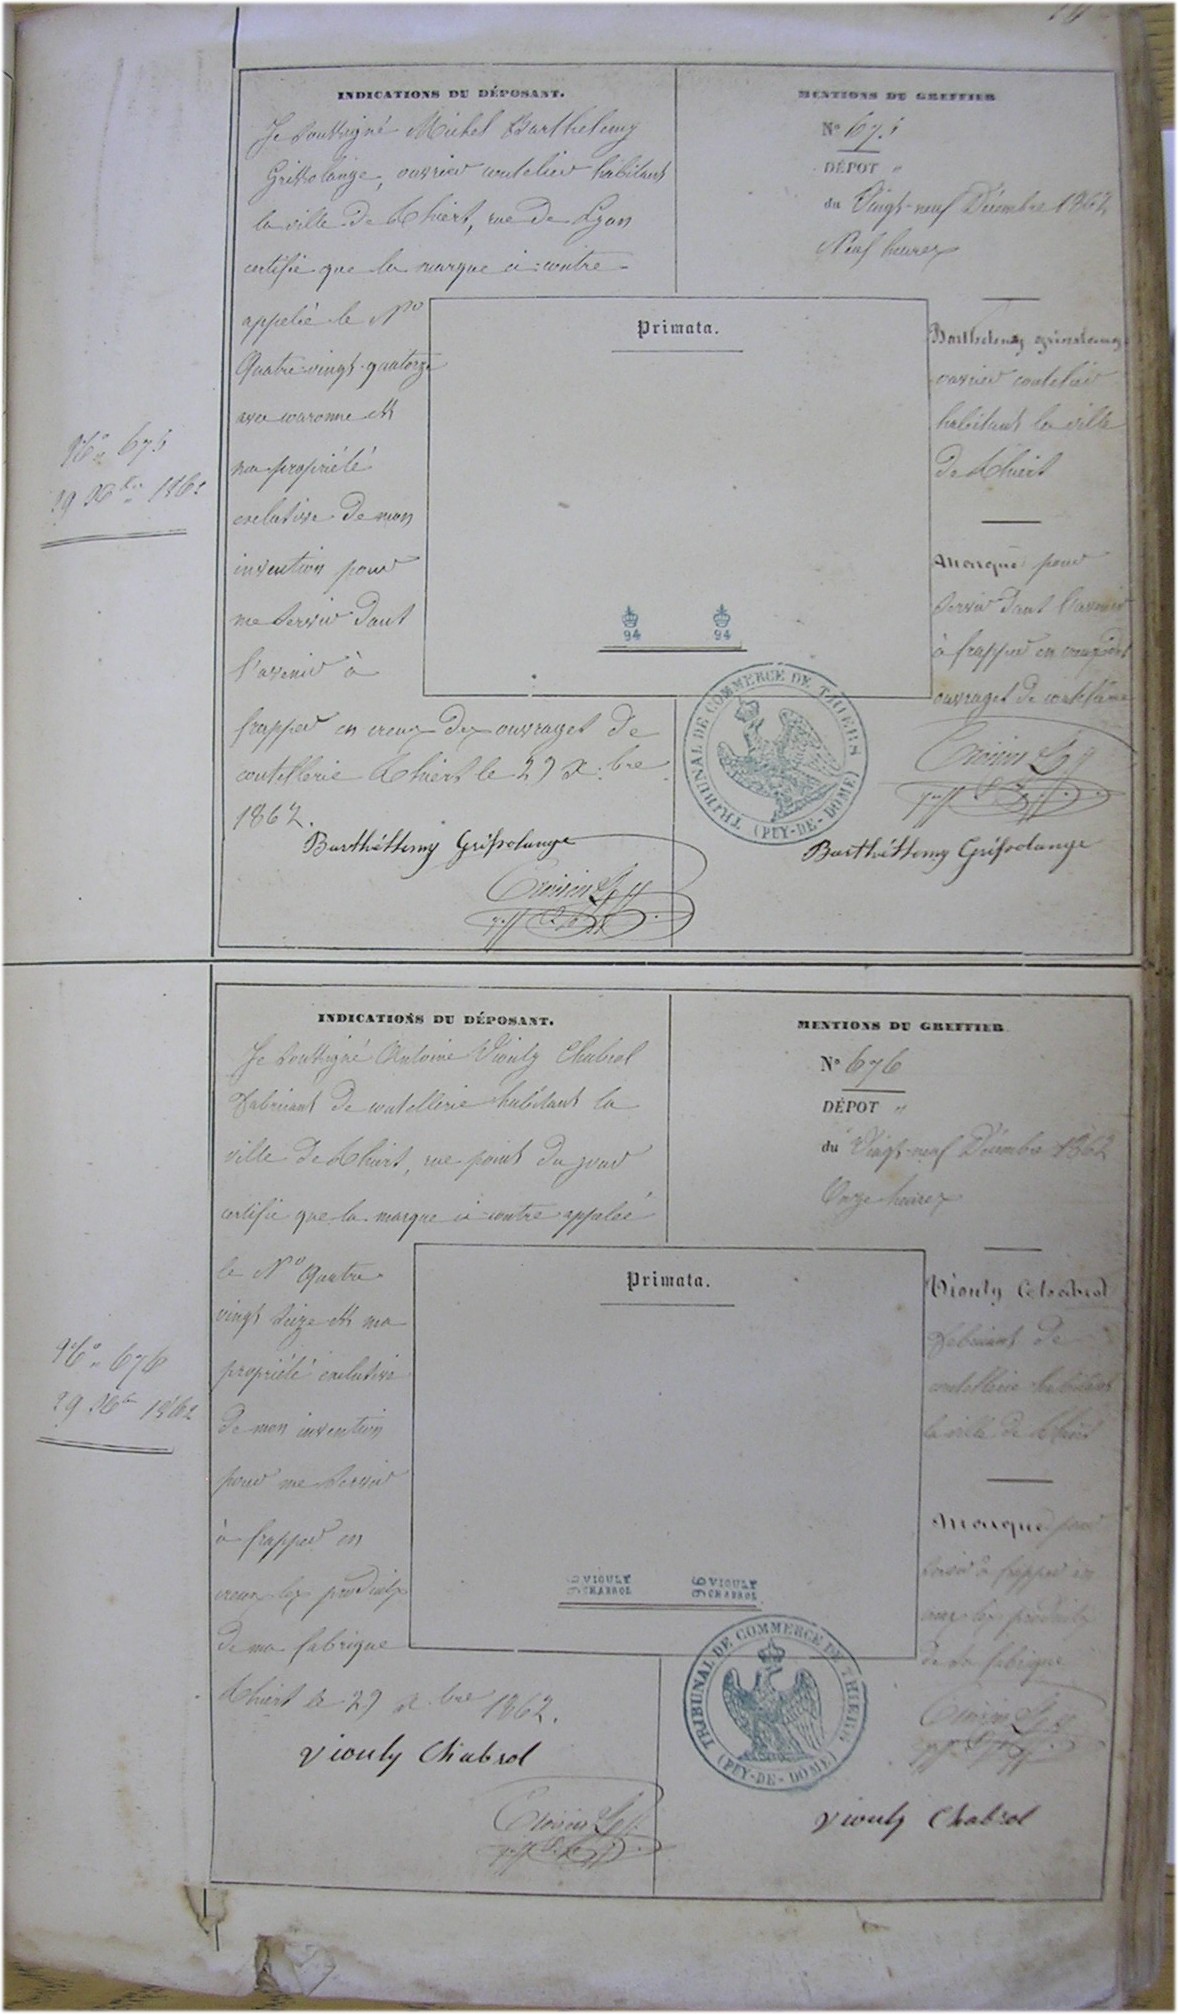 INDICATIONS DU DÉPOSANT.
Je soussigné Michel Barthelemy
Grissolange, ouvrier coutelier habitant
la ville de Thiers, rue de Lyon
certifie que la marque ci-contre
appelée le No
Quatre-vingt-quatorze
avec couronne est
ma propriété
exclusive de mon
invention pour
me servir dans
l'avenir à
frapper en creux des ouvrages de
coutellerie Thiers le 29 Xbre
1862.
Barthélemy Grissolange
MENTIONS DU GREFFIER
No 675
DÉPOT "
du Vingt-neuf Décembre 1862
Neuf heures
Barthelemy Grissolange
ouvrier coutelier
habitant la ville
de Thiers
Marque pour
servir dans l'avenir
à frapper en creux des
ouvrages de coutellerie
Barthélemy Grissolange
Primata.
94 94
TRIBUNAL DE COMMERCE DE THIERS
(PUY-DE-DOME)
No 675
29 Xbre 1862
INDICATIONS DU DÉPOSANT.
Je soussigné Antoine Viouly Chabrol
Fabricant de coutellerie habitant la
ville de Thiers, rue point du jour
certifie que la marque ci-contre appelée
le No Quatre
vingt seize est ma
propriété exclusive
de mon invention
pour me servir
à frapper en
creux les produits
de ma fabrique
Thiers le 29 Xbre 1862.
Viouly Chabrol
MENTIONS DU GREFFIER
No 676
DÉPOT "
du Vingt-neuf Décembre 1862
Onze heures
Viouly Chabrol
Fabricant de
coutellerie habitant
la ville de Thiers
Marque pour
servir à frapper en
creux les produits
de sa fabrique
Viouly Chabrol
Primata.
96 VIOULY CHABROL 96 VIOULY CHABROL
TRIBUNAL DE COMMERCE DE THIERS
(PUY-DE-DOME)
No 676
29 Xbre 1862